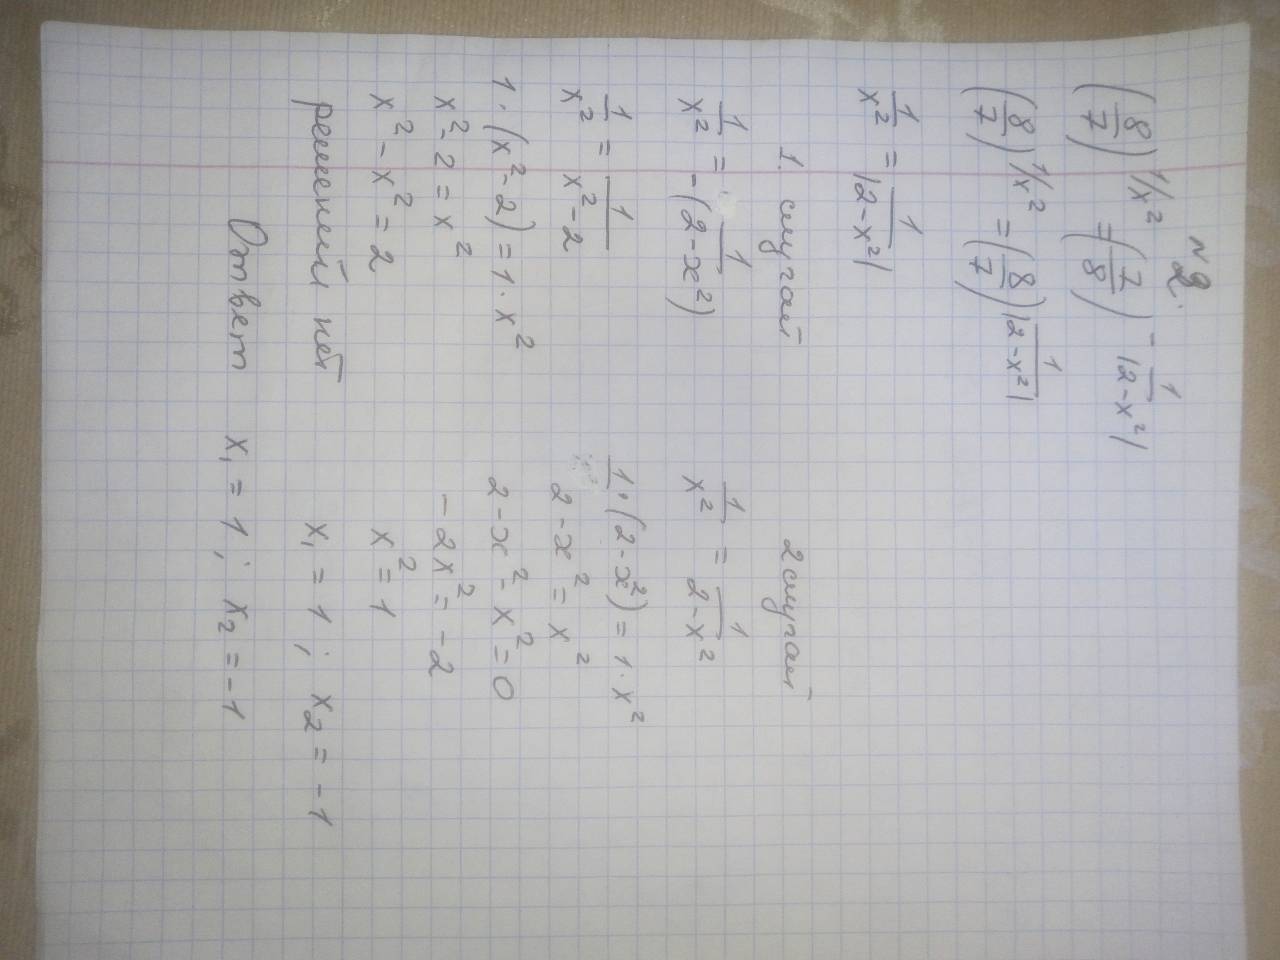 №2.
(8/7)^(1/x²) = (7/8)^(-1/|2-x²|)
(8/7)^(1/x²) = (8/7)^(1/|2-x²|)
1/x² = 1/|2-x²|
1. случай
1/x² = 1/-(2-x²)
1/x² = 1/x²-2
1·(x²-2) = 1·x²
x²-2 = x²
x²-x² = 2
решений нет
2 случай
1/x² = 1/2-x²
1·(2-x²) = 1·x²
2-x² = x²
2-x²-x² = 0
-2x² = -2
x² = 1
x₁ = 1; x₂ = -1
Ответ x₁ = 1; x₂ = -1